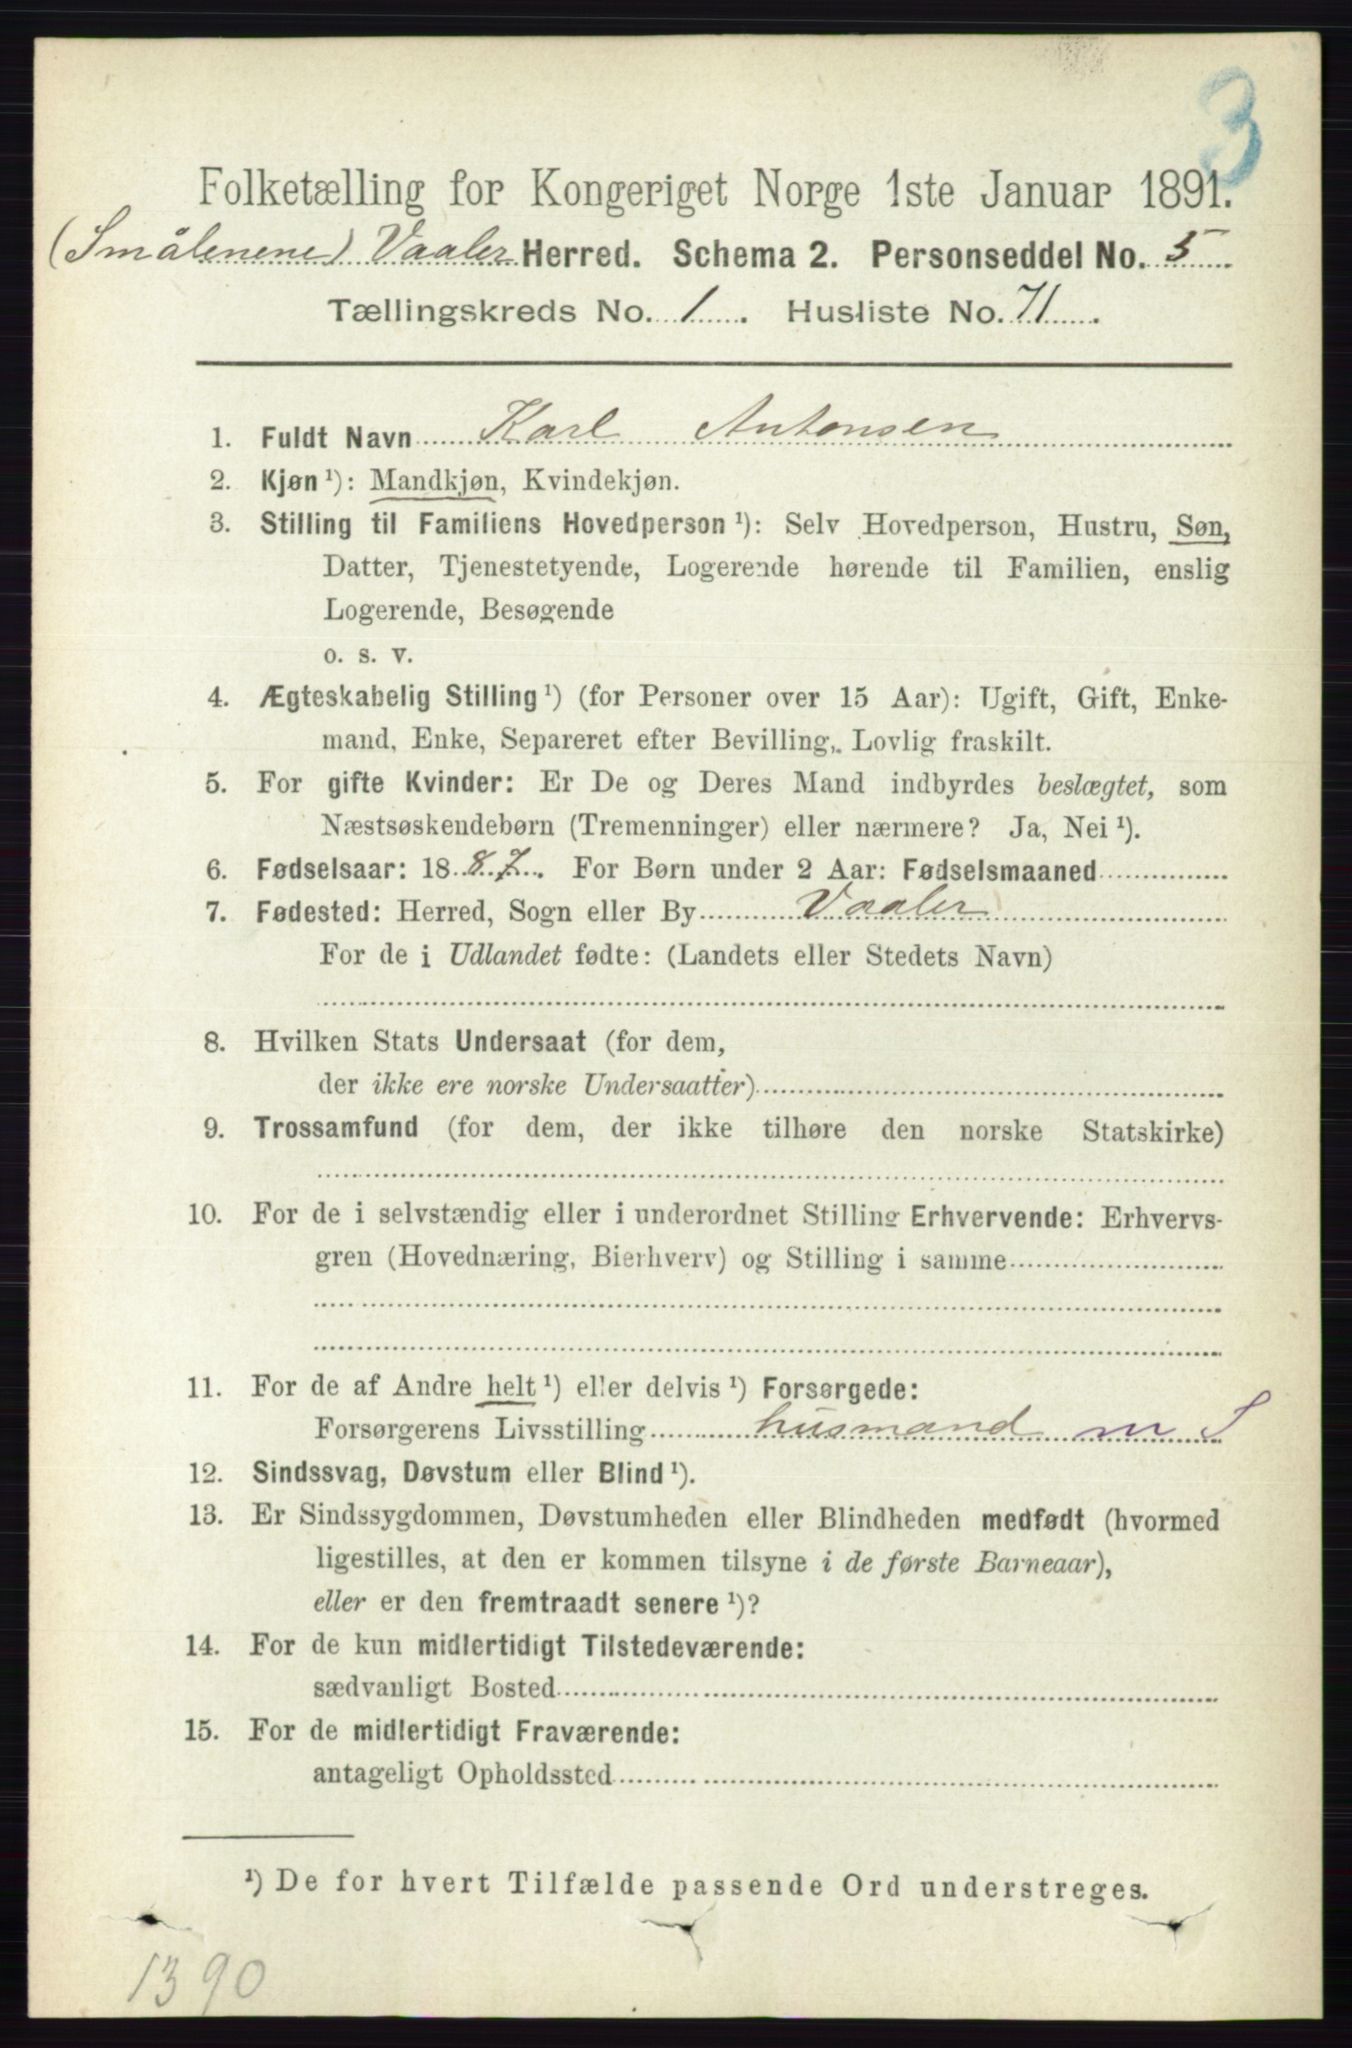 3
Folketælling for Kongeriget Norge 1ste Januar 1891.
(Smålenene) Vaaler Herred. Schema 2. Personseddel No. 5
Tællingskreds No. 1. Husliste No. 71.
1. Fuldt Navn Karl Antonsen
2. Kjøn ¹): Mandkjøn, Kvindekjøn.
3. Stilling til Familiens Hovedperson ¹): Selv Hovedperson, Hustru, Søn,
Datter, Tjenestetyende, Logerende hørende til Familien, enslig
Logerende, Besøgende
o. s. v.
4. Ægteskabelig Stilling ¹) (for Personer over 15 Aar): Ugift, Gift, Enke-
mand, Enke, Separeret efter Bevilling, Lovlig fraskilt.
5. For gifte Kvinder: Er De og Deres Mand indbyrdes beslægtet, som
Næstsøskendebørn (Tremenninger) eller nærmere? Ja, Nei ¹).
6. Fødselsaar: 1887. For Børn under 2 Aar: Fødselsmaaned
7. Fødested: Herred, Sogn eller By Vaaler
For de i Udlandet fødte: (Landets eller Stedets Navn)
8. Hvilken Stats Undersaat (for dem,
der ikke ere norske Undersaatter)
9. Trossamfund (for dem, der ikke tilhøre den norske Statskirke)
10. For de i selvstændig eller i underordnet Stilling Erhvervende: Erhvervs-
gren (Hovednæring, Bierhverv) og Stilling i samme
11. For de af Andre helt ¹) eller delvis ¹) Forsørgede:
Forsørgerens Livsstilling husmand m S
12. Sindssvag, Døvstum eller Blind ¹).
13. Er Sindssygdommen, Døvstumheden eller Blindheden medfødt (hvormed
ligestilles, at den er kommen tilsyne i de første Barneaar),
eller er den fremtraadt senere ¹)?
14. For de kun midlertidigt Tilstedeværende:
sædvanligt Bosted
15. For de midlertidigt Fraværende:
antageligt Opholdssted
¹) De for hvert Tilfælde passende Ord understreges.
1390